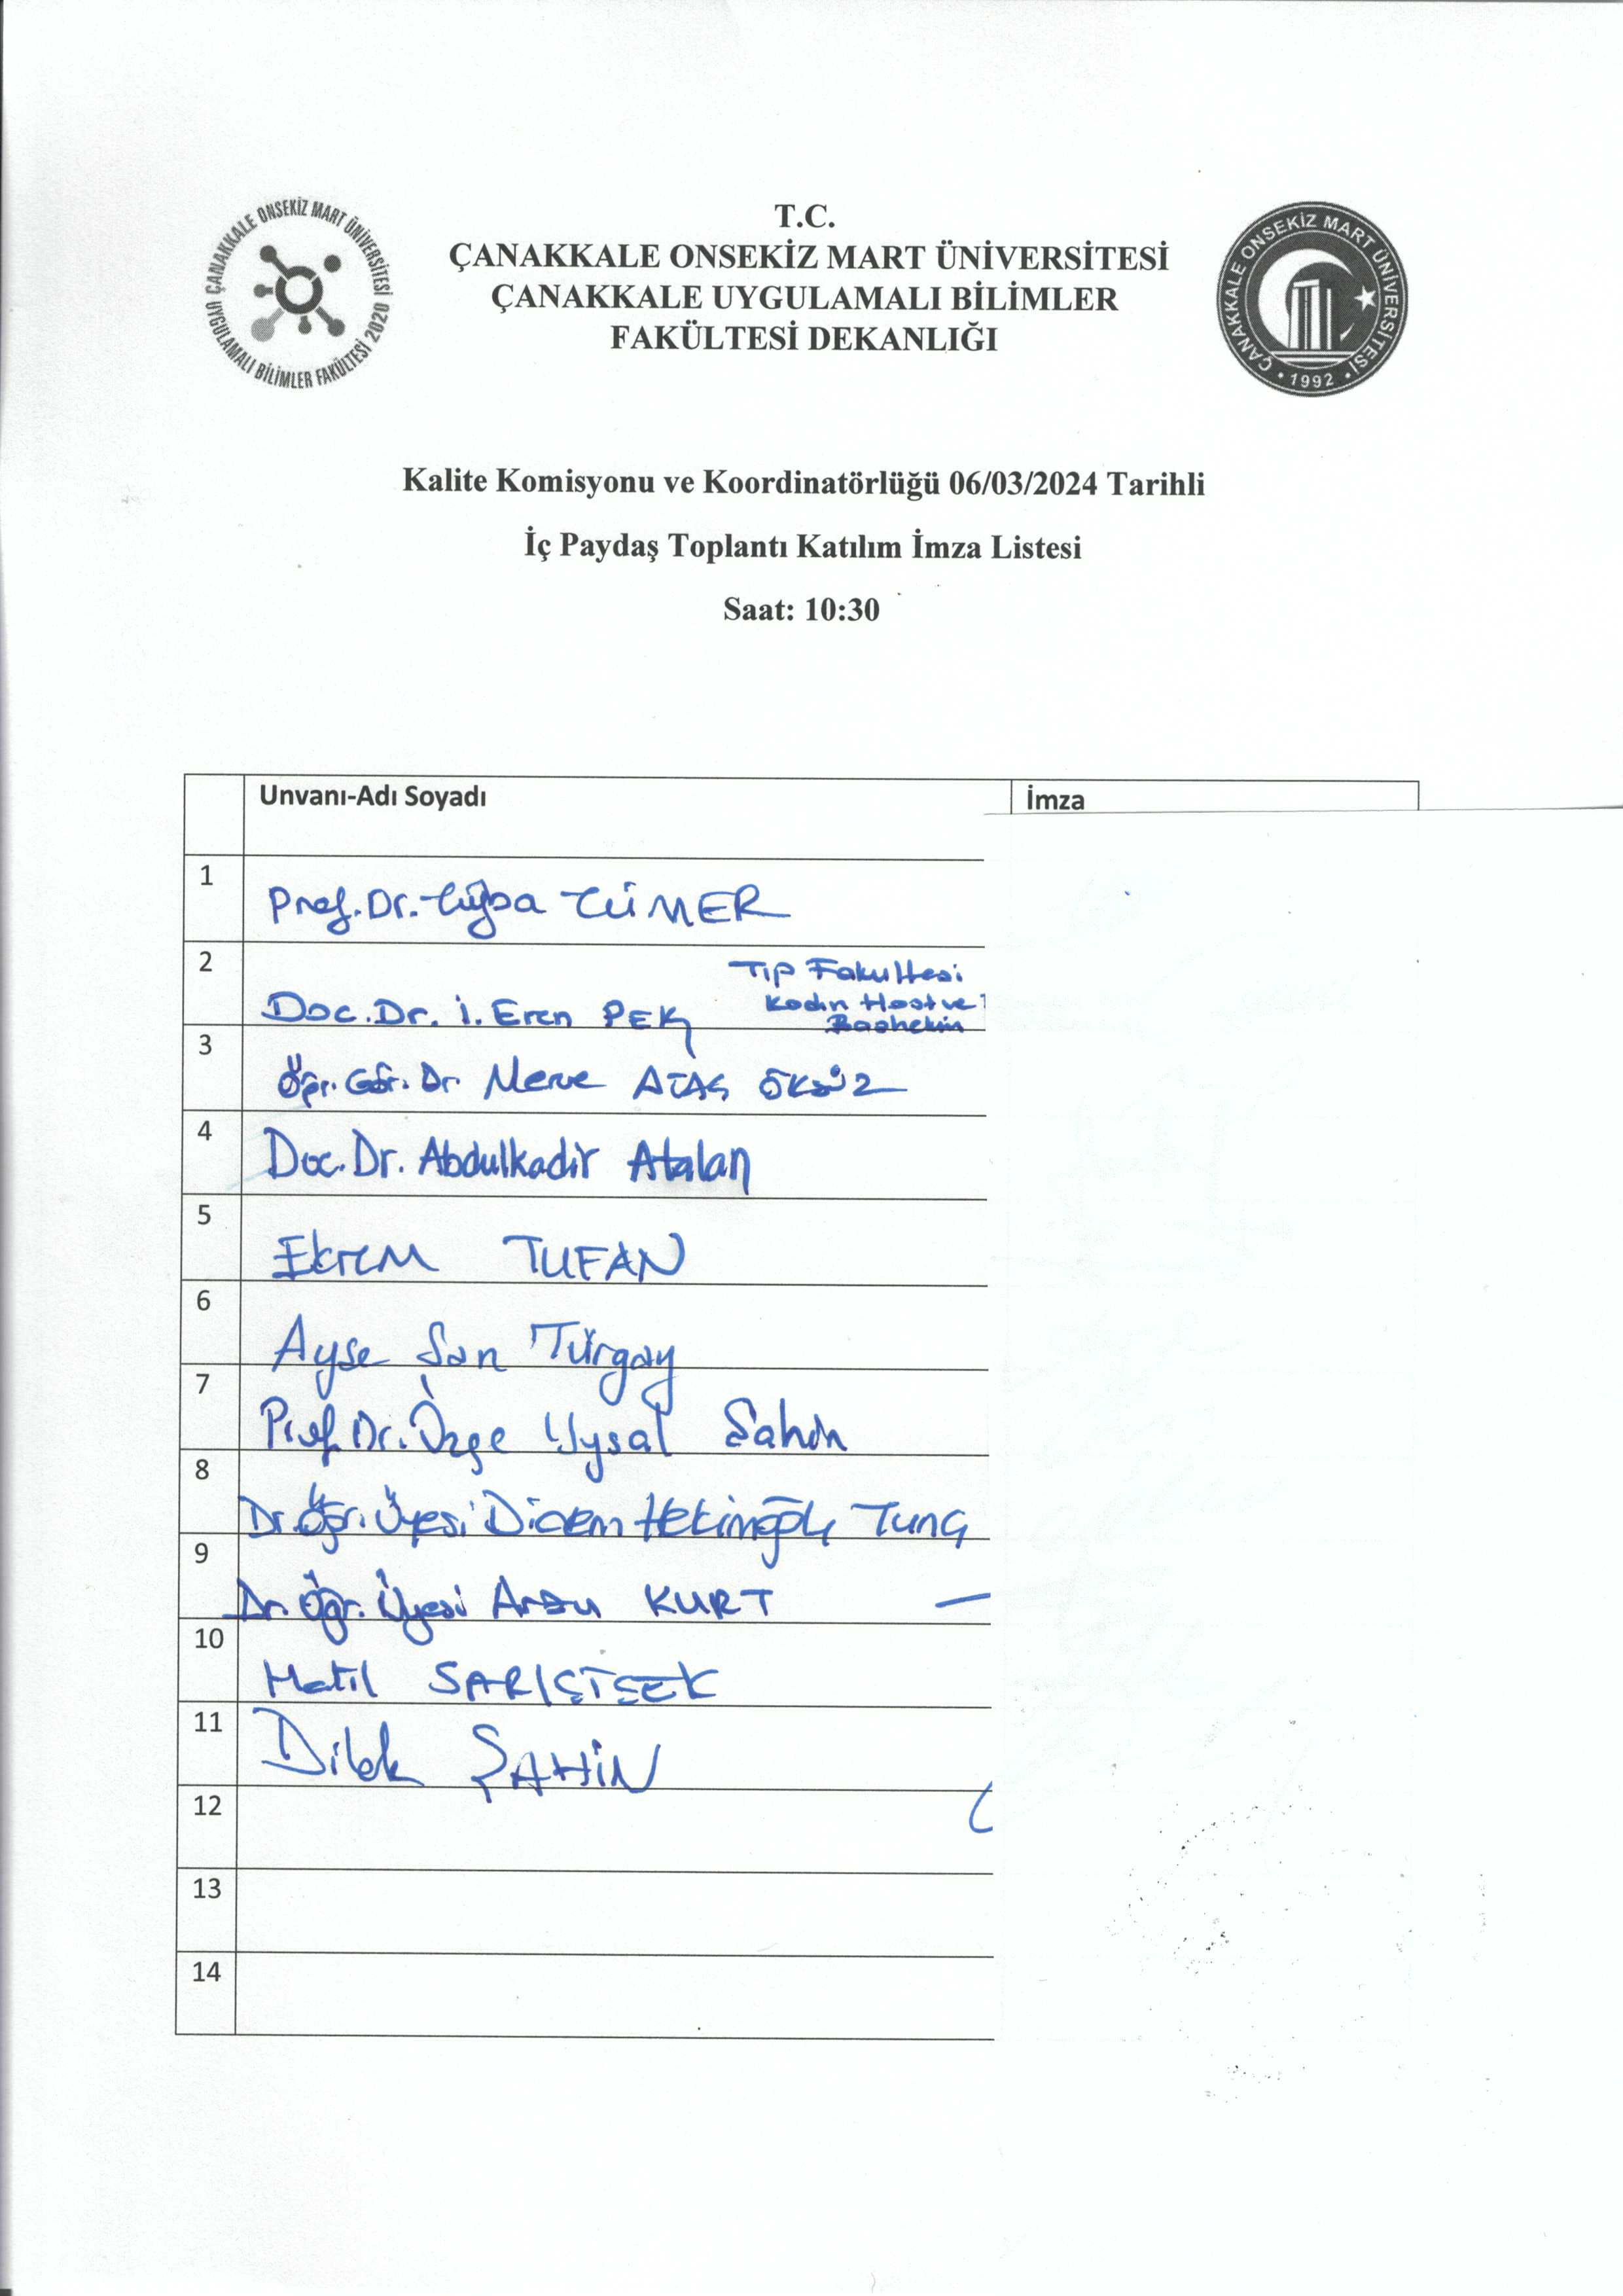 ÇANAKKALE ONSEKİZ MART ÜNİVERSİTESİ 2020
UYGULAMALI BİLİMLER FAKÜLTESİ
T.C.
ÇANAKKALE ONSEKİZ MART ÜNİVERSİTESİ
ÇANAKKALE UYGULAMALI BİLİMLER
FAKÜLTESİ DEKANLIĞI
ÇANAKKALE ONSEKİZ MART ÜNİVERSİTESİ
• 1992 •
Kalite Komisyonu ve Koordinatörlüğü 06/03/2024 Tarihli
İç Paydaş Toplantı Katılım İmza Listesi
Saat: 10:30
Unvanı-Adı Soyadı İmza
1 Prof. Dr. Tuğba TÜMER
2 Doc. Dr. İ. Eren PEK
Tıp Fakultesi
Kadın Hast ve
Başhekim
3 Öğr. Gör. Dr. Merve ATAŞ ÖKSÜZ
4 Doc. Dr. Abdulkadir Atalan
5 Ekrem TUFAN
6 Ayşe Şan Türgay
7 Prof. Dr. Özge Uysal Şahin
8 Dr. Öğr. Üyesi Didem Hekimoğlu Tunç
9 Dr. Öğr. Üyesi Arzu KURT
10 Halil SARIÇİÇEK
11 Dilek ŞAHİN
12
13
14